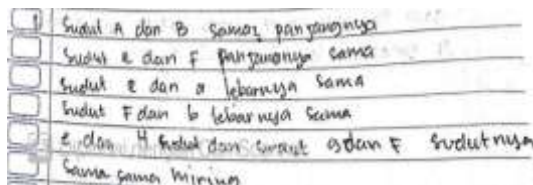 1 Sudut A dan B sama2 panjangnya
Sudut e dan F panjangnya sama
Sudut e dan a lebarnya sama
Sudut F dan b lebarnya sama
e dan H sudut dan sudut g dan F sudutnya
sama sama miring